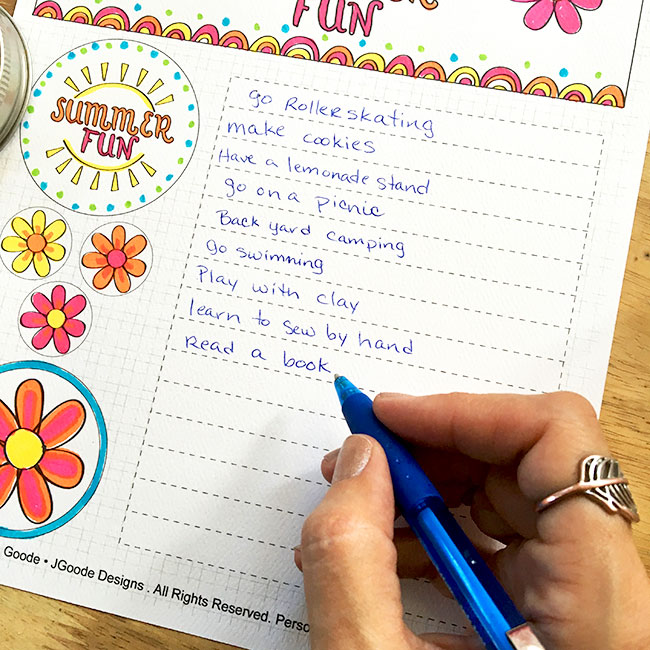 SUMMER
FUN
SUMMER
FUN
go Rollerskating
make cookies
Have a lemonade stand
go on a picnic
Back yard camping
go swimming
Play with clay
learn to sew by hand
Read a book
Goode • JGoode Designs . All Rights Reserved.